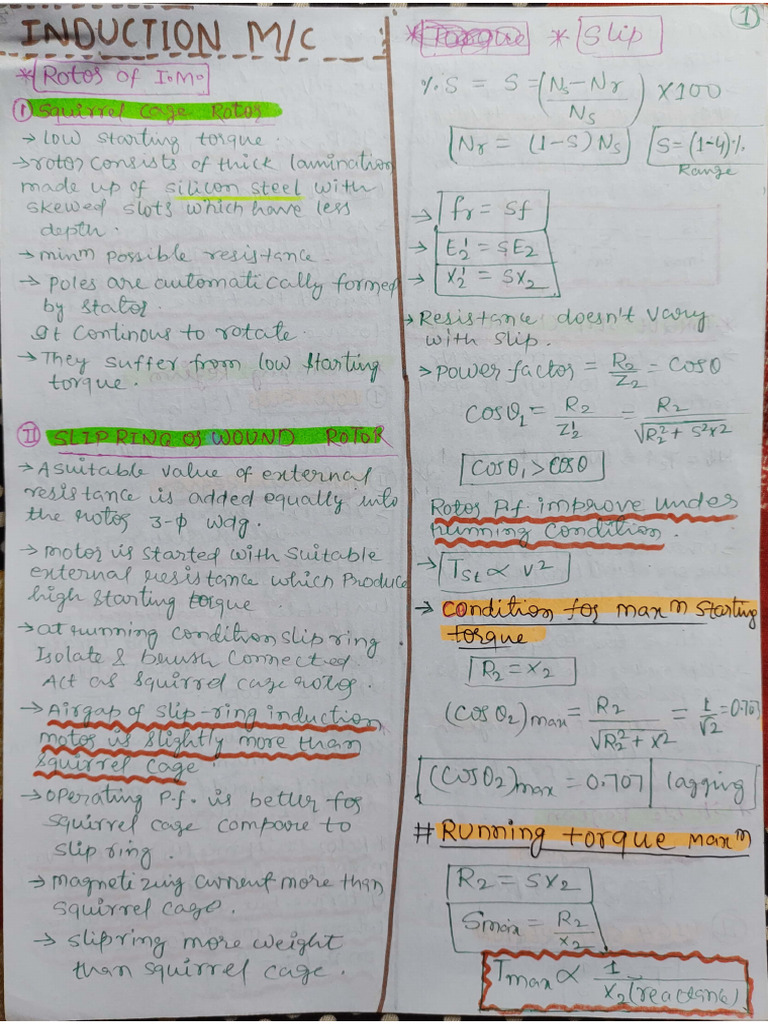 INDUCTION M/C
* Rotor of I.M.
① Squirrel Cage Rotor
→ low starting torque.
→ rotor consists of thick lamination
made up of silicon steel with
skewed slots which have less
depth.
→ minm possible resistance
→ poles are automatically formed
by stator.
It continous to rotate.
→ They suffer from low starting
torque.
II SLIP RING or WOUND ROTOR
→ A suitable value of external
resistance is added equally into
the rotor 3-ϕ wdg.
→ motor is started with suitable
external resistance which produce
high starting torque
→ at running condition slip ring
Isolate & brush connected.
Act as squirrel cage rotor.
→ Airgap of slip-ring induction
motor is slightly more than
squirrel cage
→ operating P.f. is better for
squirrel cage compare to
slip ring.
→ magnetizing current more than
squirrel cage.
→ slipring more weight
than squirrel cage.
①
* Torque * Slip
% S = S = (Ns - Nr / Ns) × 100
Nr = (1-S) Ns S = (1-4)%
Range
→ fr = Sf
→ E2' = SE2
→ X2' = SX2
→ Resistance doesn't vary
with slip.
→ power factor = R2/Z2 = Cosθ
Cosθ1 = R2/Z2' = R2/√R2² + S²X2
Cosθ1 > Cosθ
Rotor P.f. improve under
running condition.
→ Tst ∝ V²
→ condition for max m starting
torque
R2 = X2
(Cosθ2)max = R2/√R2² + X2 = 1/√2 = 0.707
(Cosθ2)max = 0.707 lagging
# Running torque max m
R2 = SX2
Smax = R2/X2
Tmax ∝ 1/X2 (reactance)